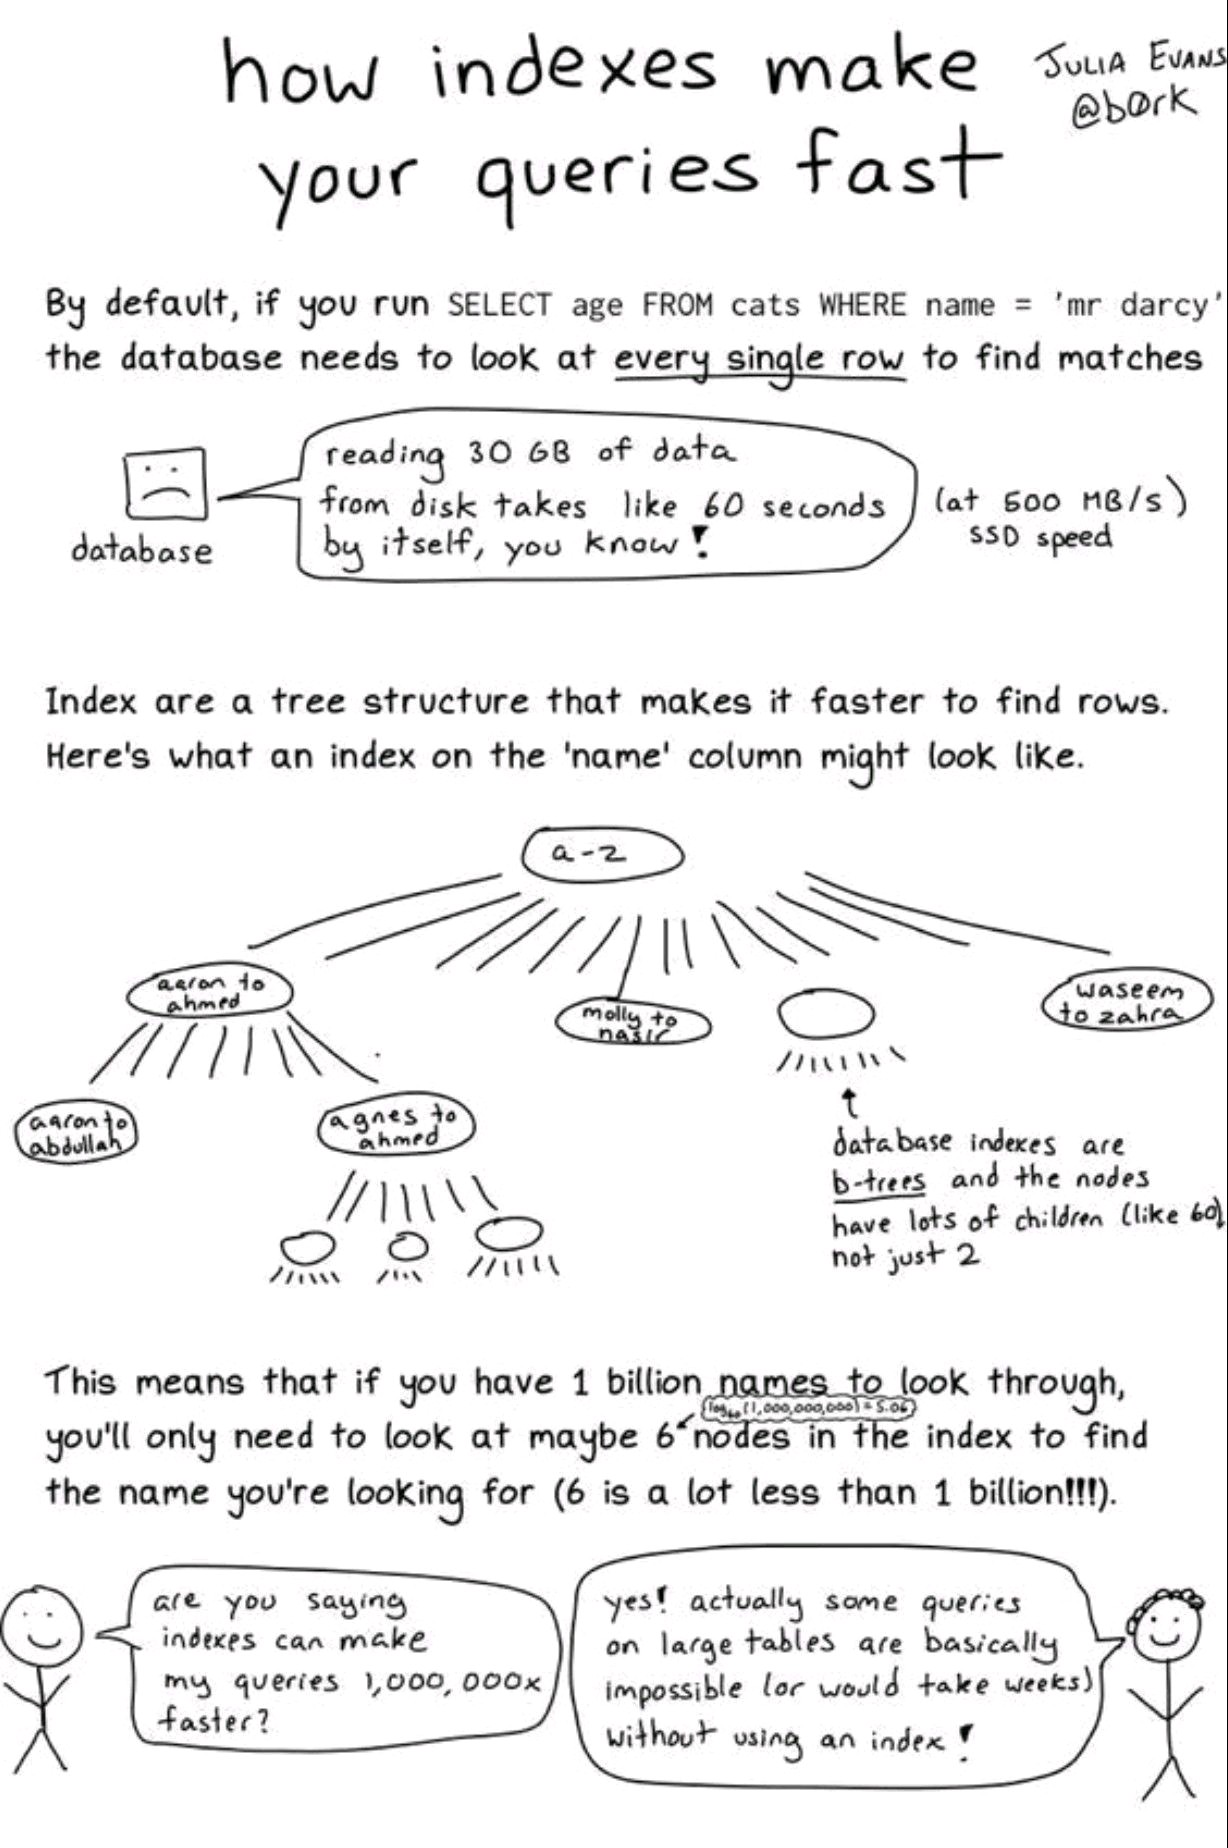 how indexes make
your queries fast
JULIA EVANS
@b0rk
By default, if you run SELECT age FROM cats WHERE name = 'mr darcy'
the database needs to look at every single row to find matches
reading 30 GB of data
from disk takes like 60 seconds
by itself, you know!
(at 500 MB/s)
SSD speed
database
Index are a tree structure that makes it faster to find rows.
Here's what an index on the 'name' column might look like.
a-z
aaron to
ahmed
molly to
nasir
waseem
to zahra
aaron to
abdullah
agnes to
ahmed
database indexes are
b-trees and the nodes
have lots of children (like 60)
not just 2
This means that if you have 1 billion names to look through,
log60(1,000,000,000) = 5.06
you'll only need to look at maybe 6 nodes in the index to find
the name you're looking for (6 is a lot less than 1 billion!!!).
are you saying
indexes can make
my queries 1,000,000x
faster?
yes! actually some queries
on large tables are basically
impossible (or would take weeks)
without using an index!